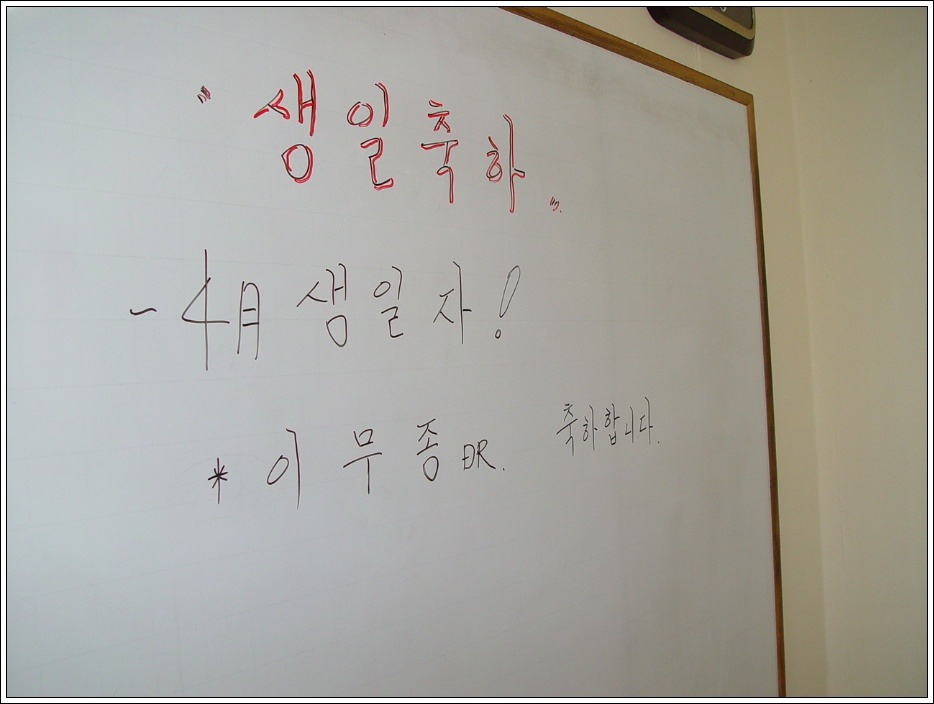 "생일축하"
~ 4月 생일자!
* 이무종 DR. 축하합니다.